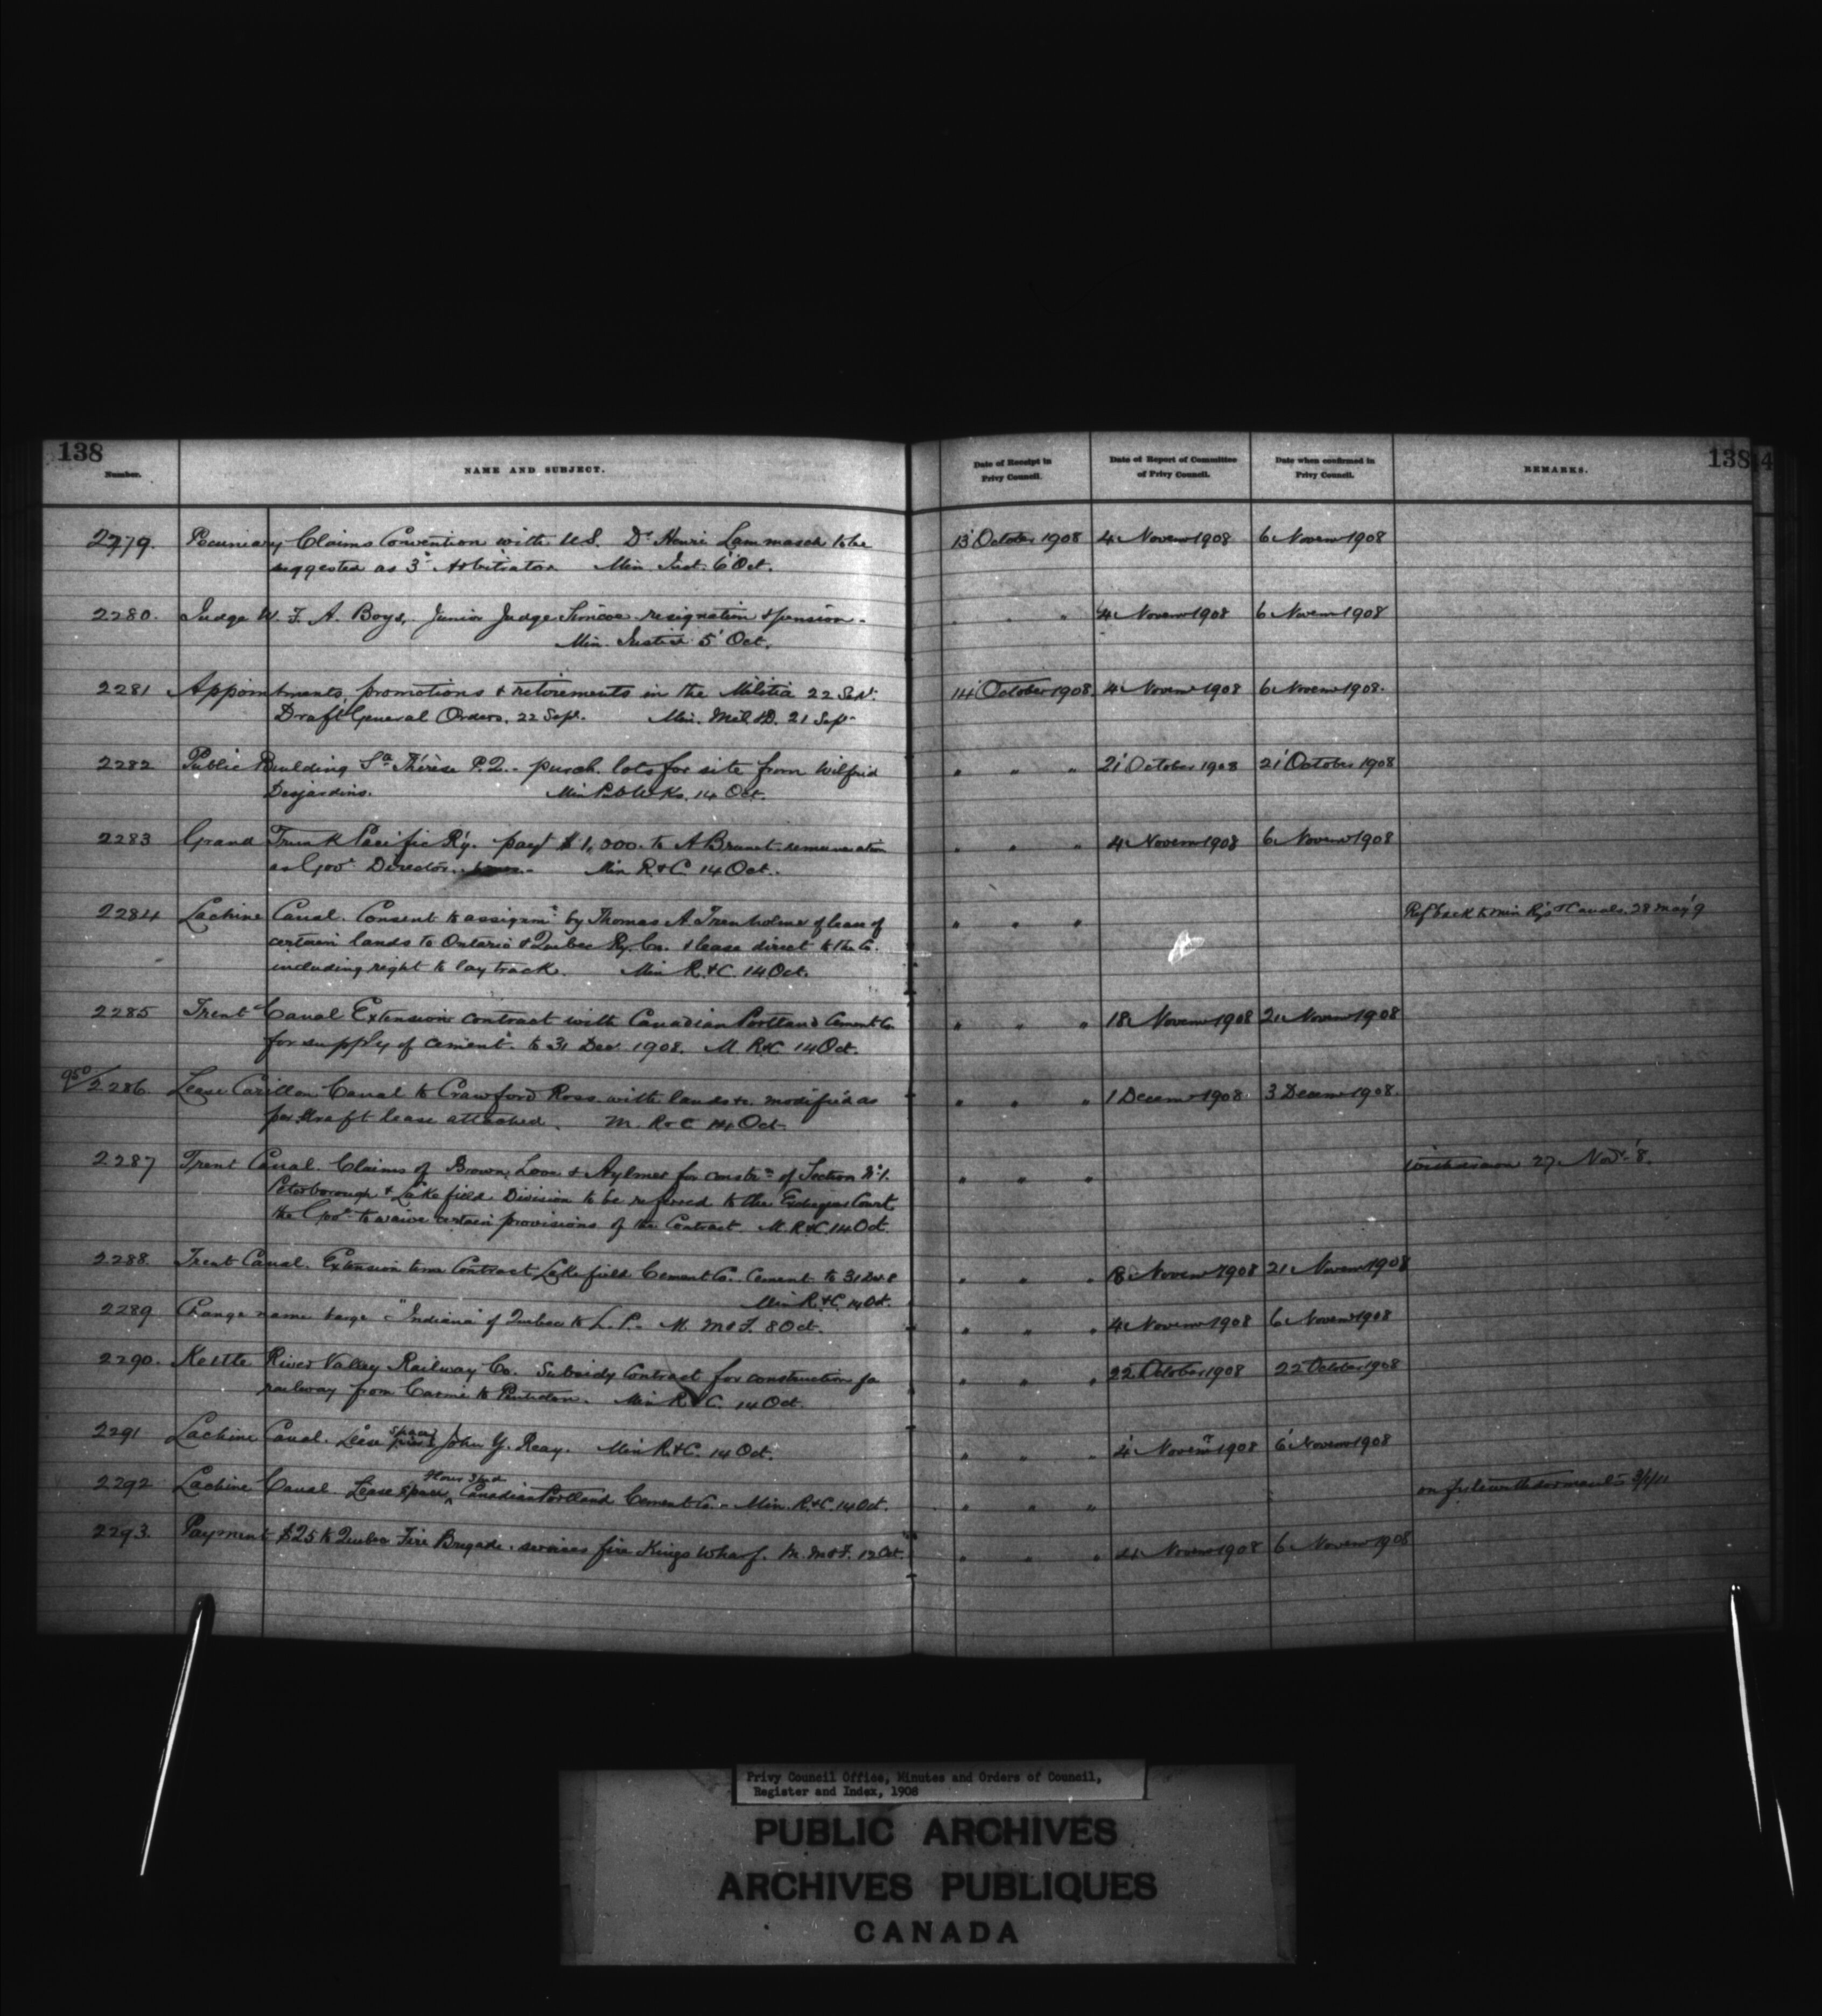 138
Number.
NAME AND SUBJECT.
Date of Receipt in Privy Council.
Date of Report of Committee of Privy Council.
Date when confirmed in Privy Council.
REMARKS.
138
2279. Pecuniary Claims Convention with U.S. Dr Henri Lammasch to be 13 October 1908 4 Novem 1908 6 Novem 1908
suggested as 3d Arbitrator Min. Just. 6 Oct.
2280. Judge W. F. A. Boys, Junior Judge Simcoe resignation & pension. " " " 4 Novem 1908 6 Novem 1908
Min. Justice 5 Oct.
2281 Appointments, promotions & retirements in the Militia 22 Sept. 14 October 1908 4 Novem 1908 6 Novem 1908.
Draft General Orders, 22 Sept. Min. Mil & D. 21 Sept
2282 Public Building Ste Thérèse P.Q. - purch. lots for site from Wilfrid " " " 21 October 1908 21 October 1908
Desjardins. Min Pub Wks. 14 Oct.
2283 Grand Trunk Pacific Ry. payt $1,000. to A Brunet remuneration " " " 4 Novem 1908 6 Novem 1908
as Govt Director. Min R. & C. 14 Oct.
2284 Lachine Canal. Consent to assignmt by Thomas A Trenholme of lease of " " " Ref back to Min Rys & Canals. 28 May '9
certain lands to Ontario & Quebec Ry. Co. & lease direct to the Co.
including right to lay track. Min R. & C. 14 Oct.
2285 Trent Canal Extension contract with Canadian Portland Cement Co " " " 18 Novem 1908 21 Novem 1908
for supply of cement. to 31 Dec. 1908. M. R & C 14 Oct.
950/2286. Lease Carillon Canal to Crawford Ross with lands &c. modified as " " " 1 Decem 1908 3 Decem 1908.
per draft lease attached. M. R & C 14 Oct.
2287 Trent Canal. Claims of Brown, Love & Aylmer for constrn of Section No 1. " " " withdrawn 27 Nov. '8.
Peterborough & Lakefield Division to be referred to the Exchequer Court
the Govt to waive certain provisions of the Contract M. R. & C. 14 Oct.
2288 Trent Canal. Extension time Contract Lakefield Cement Co. Cement to 31 Dec 8 " " " 18 Novem 1908 21 Novem 1908
Min R. & C. 14 Oct.
2289 Change name barge "Indiana" of Quebec to L. P. M. M & F. 8 Oct. " " " 4 Novem 1908 6 Novem 1908
2290. Kettle River Valley Railway Co. Subsidy Contract for construction of a " " " 22 October 1908 22 October 1908
railway from Carmi to Penticton. Min R. & C. 14 Oct.
2291 Lachine Canal. Lease space John Y. Reay. Min R. & C. 14 Oct. " " " 4 Novem 1908 6 Novem 1908
2292 Lachine Canal Lease space flour shed Canadian Portland Cement Co. Min. R. & C. 14 Oct. " " "
2293. Payment $25 to Quebec Fire Brigade. services fire Kings Wharf. M. M & F. 12 Oct. " " " 4 Novem 1908 6 Novem 1908
Privy Council Office, Minutes and Orders of Council,
Register and Index, 1908
PUBLIC ARCHIVES
ARCHIVES PUBLIQUES
CANADA